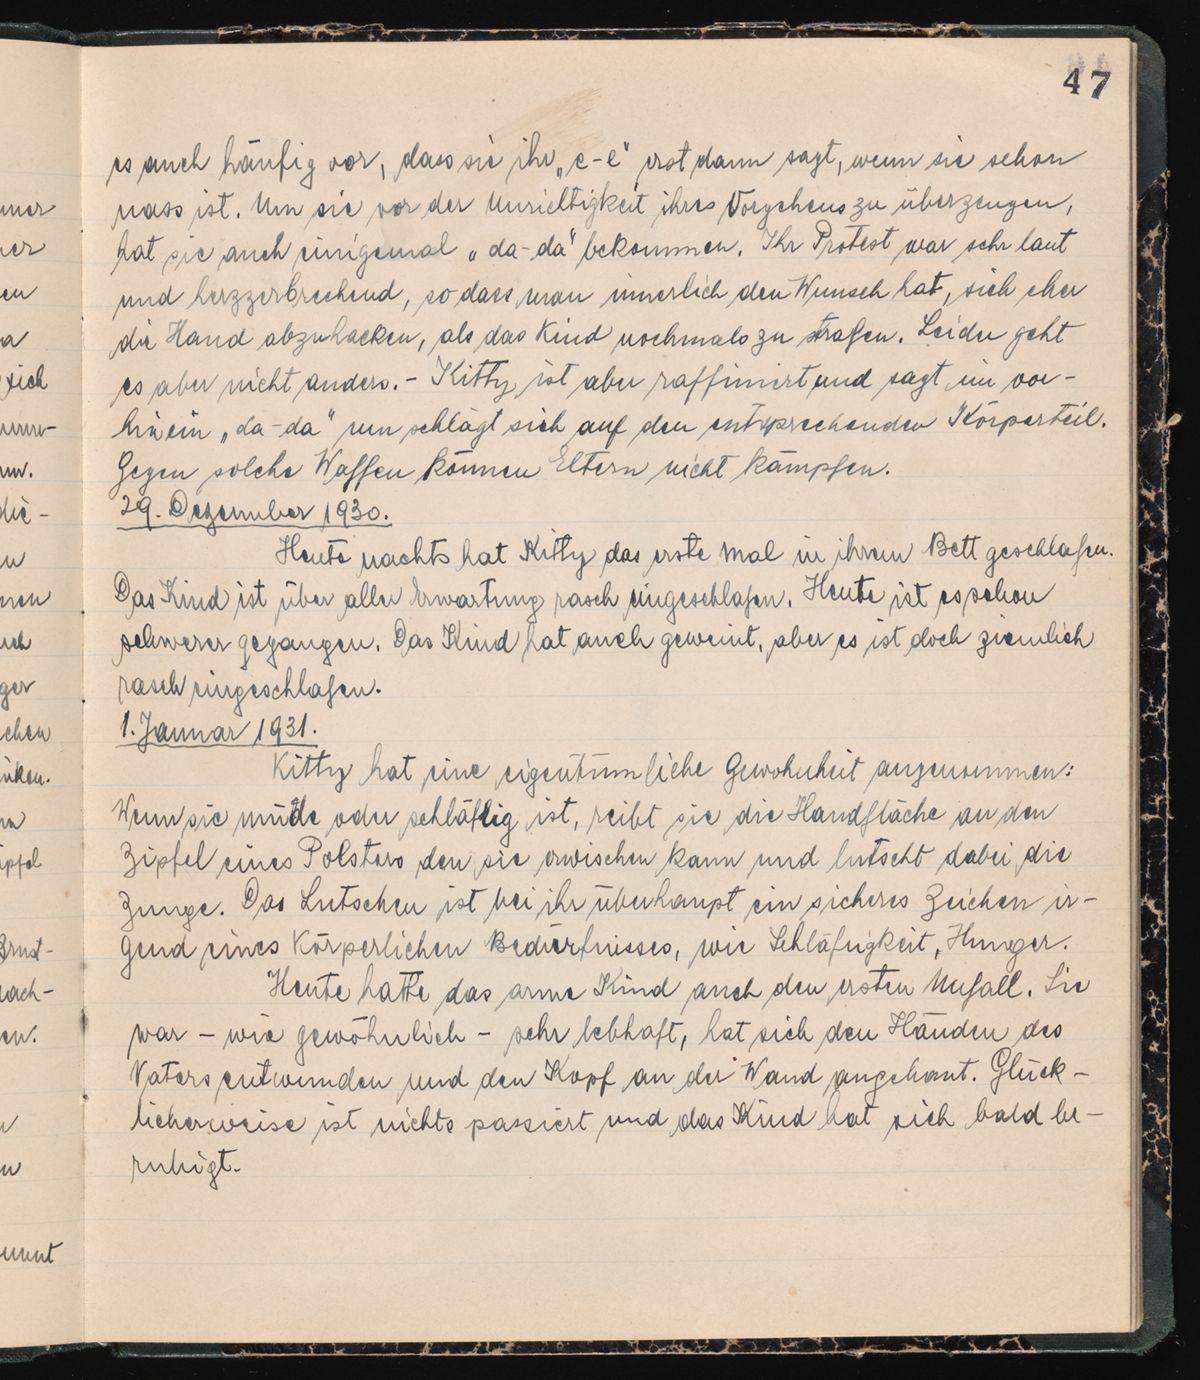 47
es auch häufig vor, dass sie ihr „e-e" erst dann sagt, wenn sie schon
nass ist. Um sie von der Unrichtigkeit ihres Vorgehens zu überzeugen,
hat sie auch einigemal „da-da" bekommen. Ihr Protest war sehr laut
und herzzerbrechend, so dass man innerlich den Wunsch hat, sich eher
die Hand abzuhacken, als das Kind nochmals zu strafen. Leider geht
es aber nicht anders. - Kitty ist aber raffiniert und sagt im vor-
hinein „da-da" un schlägt sich auf den entsprechenden Körperteil.
Gegen solche Waffen können Eltern nicht kämpfen.
29. Dezember 1930.
Heute nachts hat Kitty das erste Mal in ihrem Bett geschlafen.
Das Kind ist über aller Erwartung rasch eingeschlafen. Heute ist es schon
schwerer gegangen. Das Kind hat auch geweint, aber es ist doch ziemlich
rasch eingeschlafen.
1. Januar 1931.
Kitty hat eine eigentümliche Gewohnheit angenommen:
Wenn sie müde oder schläfrig ist, reibt sie die Handfläche an den
Zipfel eines Polsters den sie erwischen kann und lutscht dabei die
Zunge. Das Lutschen ist bei ihr überhaupt ein sicheres Zeichen ir-
gend eines körperlichen Bedürfnisses, wie Schläfrigkeit, Hunger.
Heute hatte das arme Kind auch den ersten Unfall. Sie
war - wie gewöhnlich - sehr lebhaft, hat sich den Händen des
Vaters entwunden und den Kopf an der Wand angehaut. Glück-
licherweise ist nichts passiert und das Kind hat sich bald be-
ruhigt.